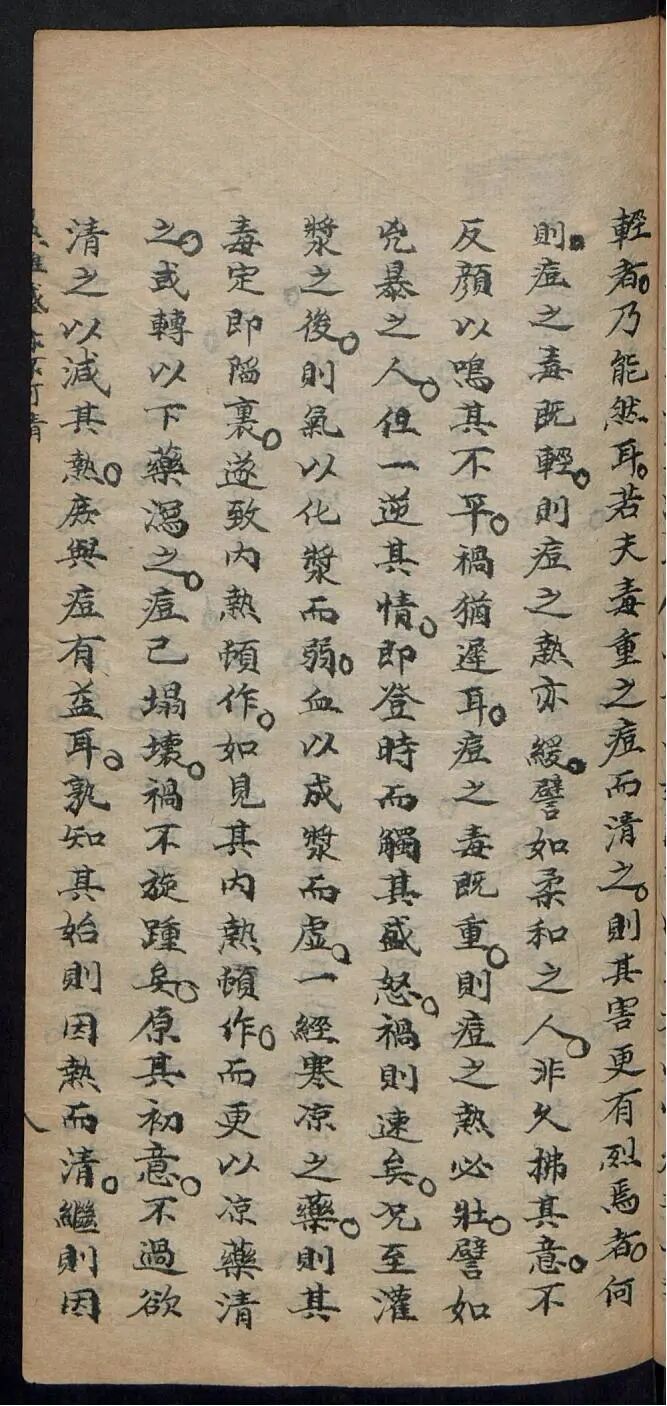 輕者。乃能然耳。若夫毒重之痘而清之。則其害更有烈焉者。何
則。痘之毒既輕。則痘之熱亦緩。譬如柔和之人。非久拂其意。不
反顔以鳴其不平。禍猶遲耳。痘之毒既重。則痘之熱必壯。譬如
兇暴之人。但一逆其情。即登時而觸其盛怒。禍則速矣。况至灌
漿之後。則氣以化漿而弱。血以成漿而虛。一經寒凉之藥。則其
毒定即陷裏。遂致内熱頓作。如見其内熱頓作。而更以凉藥清
之。或轉以下藥瀉之。痘已塌壞。禍不旋踵矣。原其初意。不過欲
清之以減其熱。庻與痘有益耳。孰知其始則因熱而清。繼則因